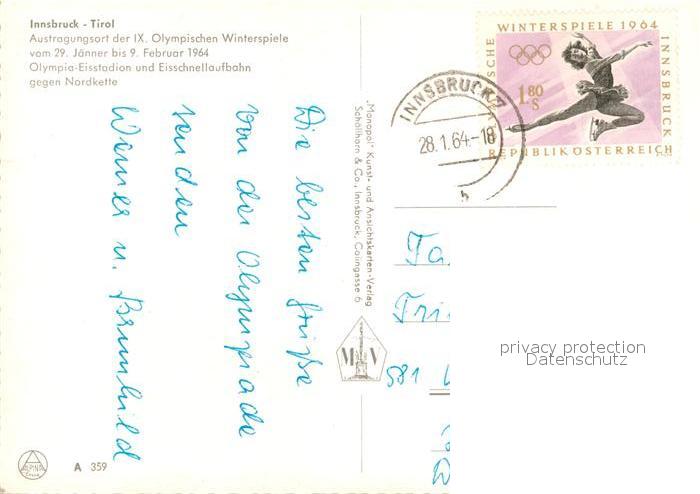 Innsbruck - Tirol
Austragungsort der IX. Olympischen Winterspiele
vom 29. Jänner bis 9. Februar 1964
Olympia-Eisstadion und Eisschnellaufbahn
gegen Nordkette
WINTERSPIELE 1964
INNSBRUCK
1.80
S
REPUBLIK ÖSTERREICH
INNSBRUCK 7
28.1.64.-18
b
Die besten Grüße
von der Olympiade
senden
Werner u. Brunhild
„Monopol" Kunst- und Ansichtskarten-Verlag
Schöllhorn & Co., Innsbruck, Colingasse 6
M V
581
privacy protection
Datenschutz
ALPINA
A 359